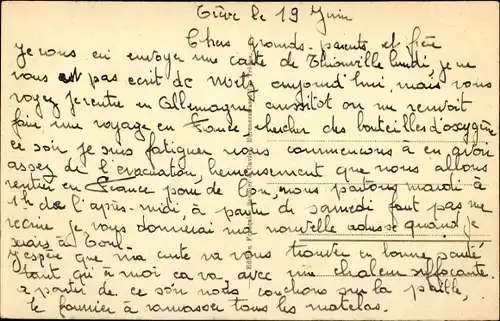 Trève le 19 Juin
Chers grands-parents et frère
je vous ai envoyé une carte de Thionville lundi, je ne
vous est pas écrit de Metz aujourd'hui, mais vous
voyez je rentre en Allemagne aussitôt on me renvoit
faire une voyage en France chercher des bouteilles d'oxygène
ce soir je suis fatiguer nous commencons à en avoir
assez de l'évacuation, heureusement que nous allons
rentrer en France pour de bon, nous partons mardi à
1h de l'après-midi, à partir de samedi faut pas me
recrire je vous donnerai ma nouvelle adresse quand je
serais à Toul.
J'espère que ma carte va vous trouver en bonne santé
tant qu'à moi ca va, avec une chaleur suffocante.
à partir de ce soir nous couchons sur la paille,
le fourrier à ramasser tous les matelas.